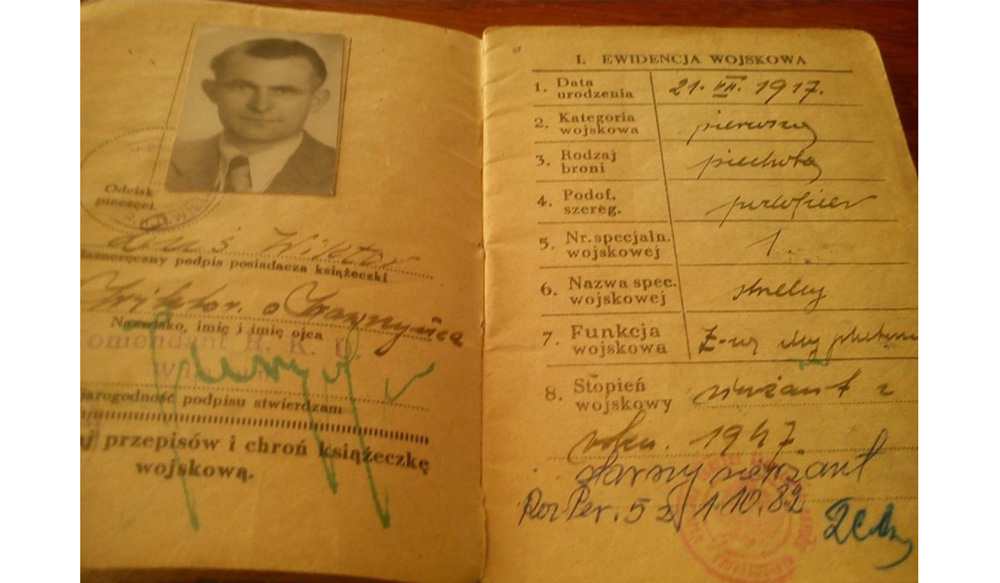 Odcisk
pieczęci
Wiktor
własnoręczny podpis posiadacza książeczki
Nazwisko, imię i imię ojca
Komendant R. K. U.
wiarogodność podpisu stwierdzam
przepisów i chroń książeczkę
wojskową.
I. EWIDENCJA WOJSKOWA
1. Data
urodzenia
21. VII. 1917.
2. Kategoria
wojskowa
pierwszej
3. Rodzaj
broni
piechota
4. Podof.
szereg.
podoficer
5. Nr. specjaln.
wojskowej
1.
6. Nazwa spec.
wojskowej
strzelcy
7. Funkcja
wojskowa
Z-ca dcy plutonu
8. Stopień
wojskowy
sierżant z
roku 1947
starszy sierżant
Roz Per. 5 z 1.10.82